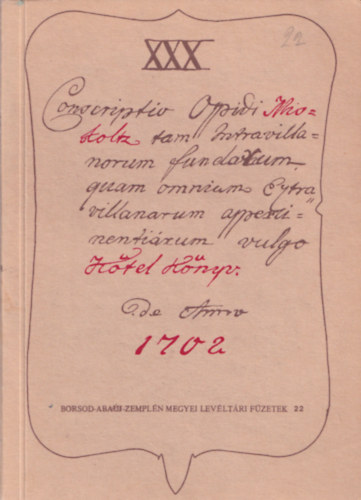 22
XXX
Conscriptio Oppidi Mis=
koltz tam Intravilla=
norum fundorum
quam omnium Extra
villanarum apperti=
nentiárum vulgo
Kőtel Kőnyv.
de Anno
1702
BORSOD-ABAÚJ-ZEMPLÉN MEGYEI LEVÉLTÁRI FÜZETEK 22